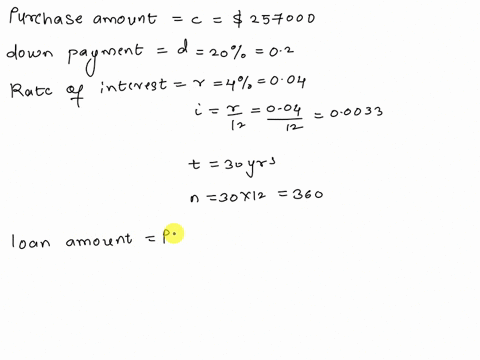 Purchase amount = c = $ 257000
down payment = d = 20% = 0.2
Rate of interest = r = 4% = 0.04
i = r/12 = 0.04/12 = 0.0033
t = 30 yrs
n = 30×12 = 360
loan amount = P